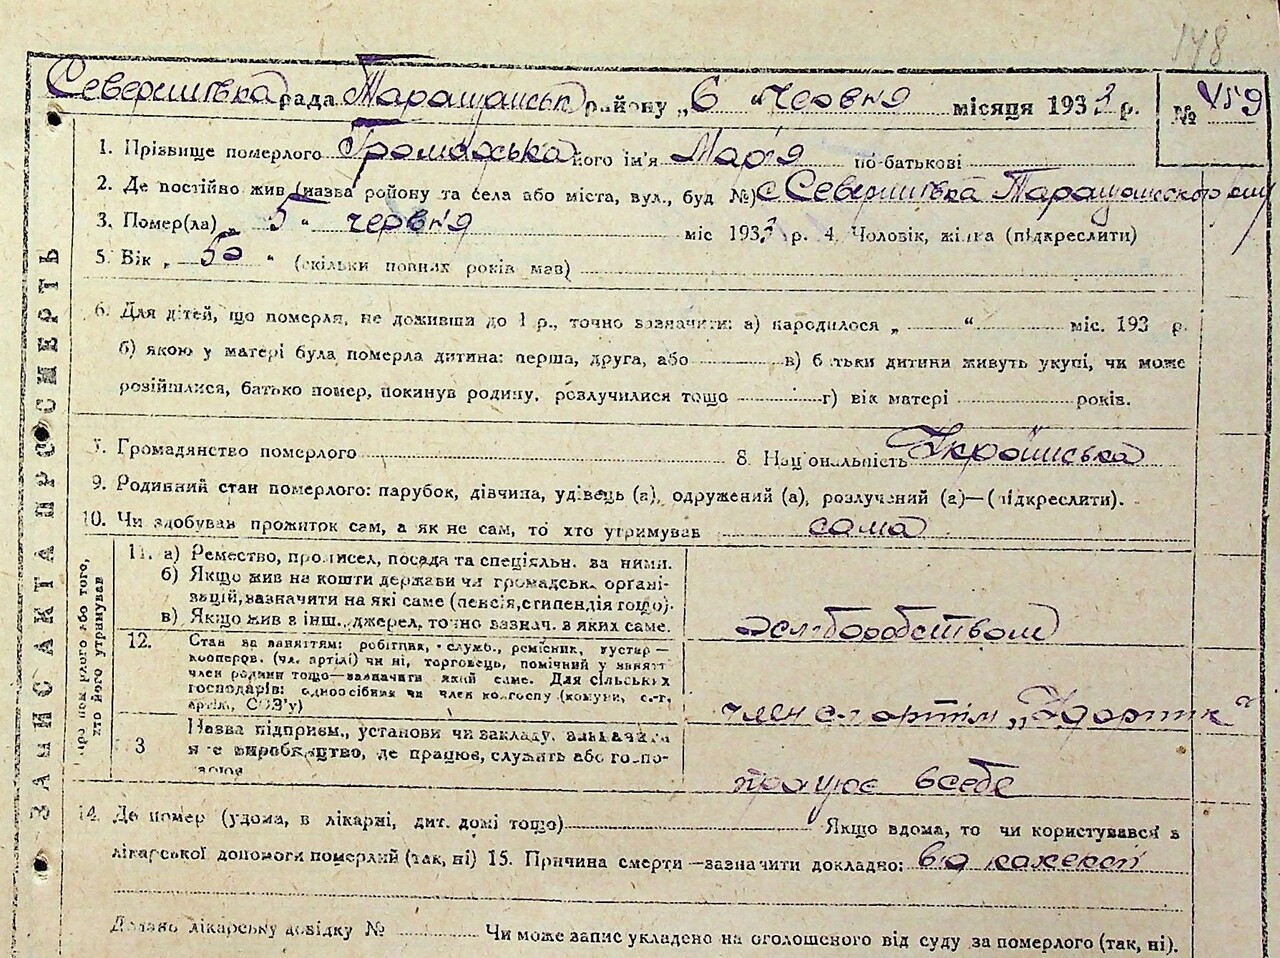 148
Северинівка рада Таращанськ району „ 6 " червня місяця 1933 р. № 159
1. Прізвище померлого Громадська його ім'я Марія по-батькові
2. Де постійно жив (назва ройону та села або міста, вул., буд №) с Северинівка Таращанского
3. Помер(ла) „ 5 " червня міс 1933 р. 4. Чоловік, жінка (підкреслити)
5. Вік „ 50 " (скільки повних років мав)
6. Для дітей, що померля, не доживши до 1 р., точно зазначити: а) народилося „ " міс. 193 р.
б) якою у матері була померла дитина: перша, друга, або в) б тьки дитини живуть укупі, чи може
розійшлися, батько помер, покинув родину, розлучилися тощо г) вік матері років.
7. Громадянство померлого 8. Національність Українська
9. Родинний стан померлого: парубок, дівчина, удівець (а), одружений (а), розлучений (а)—(підкреслити).
10. Чи здобував прожиток сам, а як не сам, то хто утримував сама
11. а) Ремество, промисел, посада та спеціяльн. за ними.
б) Якщо жив на кошти держави чи громадськ. органі-
зацій, зазначити на які саме (пенсія, стипендія тощо).
в) Якщо жив з інш. джерел, точно зазнач. з яких саме.
хліборобством
12. Стан за заняттям: робітник, служб., ремісник, кустар—
кооперов. (чл. артілі) чи ні, торговець, помічний у занятт
член родини тощо—зазначити який саме. Для сільських
господарів: одноосібник чи член колгоспу (комуни, с.-г.
артілі, СОЗ'у)
член с г артіли
3 Назва підприєм., установи чи закладу, зазначити
я е виробництво, де працює, служить або госпо-
працює в себе
14. Де помер (удома, в лікарні, дит. домі тощо) Якщо вдома, то чи користувався з
лікарської допомоги померлий (так, ні) 15. Причина смерти—зазначити докладно: від кахексії
Додано лікарську довідку № Чи може запис укладено на оголошеного від суду за померлого (так, ні).
ЗАПИС АКТА ПРО СМЕРТЬ
про померлого або того,
хто його утримував